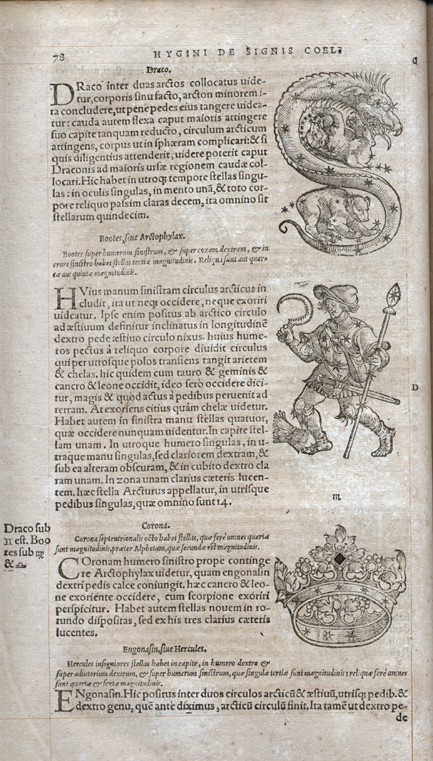 78
HYGINI DE SIGNIS COEL:
Draco.
DRaco inter duas arctos collocatus uide-
tur, corporis sinu facto, arcton minorem i-
ta concludere, ut pene pedes eius tangere uidea-
tur: cauda autem flexa caput maioris attingere
suo capite tanquam reducto, circulum arcticum
attingens, corpus ut in sphæram complicari: & si
quis diligentius attenderit, uidere poterit caput
Draconis ad maioris ursæ regionem caudæ col-
locari. Hic habet in utroq; tempore stellas singu-
las: in oculis singulas, in mento unã, & toto cor-
pore reliquo passim claras decem, ita omnino sit
stellarum quindecim.
Bootes, siue Arctophylax.
Bootes super humerum sinistrum, & super coxam dextram, & in
crure sinistro habet stellas tertiæ magnitudinis. Reliquæ sunt aut quar-
tæ aut quintæ magnitudinis.
HVius manum sinistram circulus arcticus in
cludit, ita ut neq; occidere, neque exoriri
uideatur. Ipse enim positus ab arctico circulo
ad æstiuum definitur inclinatus in longitudinẽ
dextro pede æstiuo circulo nixus. huius hume-
ros pectus à reliquo corpore diuidit circulus
qui per utrosque polos transiens tangit arietem
& chelas. hic quidem cum tauro & geminis &
cancro & leone occidit, ideo serò occidere dici-
tur, magis & quòd actus à pedibus peruenit ad
terram. At exoriens citius quàm chelæ uidetur.
Habet autem in sinistra manu stellas quatuor,
quæ occidere nunquam uidentur. In capite stel-
lam unam. In utroque humero singulas, in u-
traque manu singulas, sed clariorem dextram, &
sub ea alteram obscuram, & in cubito dextro cla
ram unam. In zona unam clarius cæteris lucen-
tem. hæc stella Arcturus appellatur, in utrisque
pedibus singulas, quæ omnino sunt 14.
D
Draco sub
est. Boo
tes sub
&
Corona.
Corona septentrionalis octo habet stellas, quæ ferè omnes quartæ
sunt magnitudinis, præter Alphetam, quæ secundæ est magnitudinis.
COronam humero sinistro prope continge
re Arctophylax uidetur, quam engonasin
dextri pedis calce coniungit. hæc cancro & leo-
ne exoriente occidere, cum scorpione exoriri
perspicitur. Habet autem stellas nouem in ro-
tundo dispositas, sed ex his tres clarius cæteris
lucentes.
Engonasin, siue Hercules.
Hercules insigniores stellas habet in capite, in humero dextro &
super adiutorium dextrum, & super humerum sinistrum, quæ singulæ tertiæ sunt magnitudinis: reliquæ ferè omnes
sunt quartæ & sextæ magnitudinis.
ENgonasin. Hic positus inter duos circulos arcticũ & æstiuũ, utrisq; pedib. &
dextro genu, quẽ ante diximus, arcticũ circulũ finit. Ita tamẽ ut dextro pe-
de